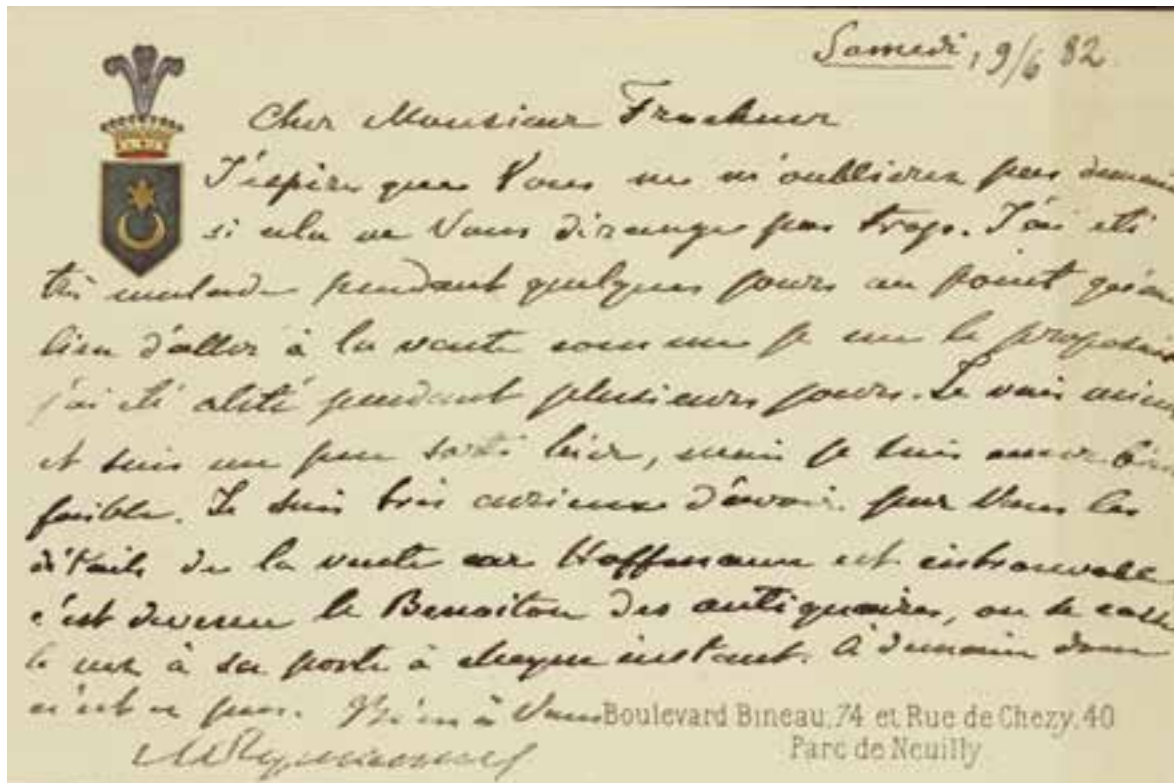 Samedi, 9/6 82.
Cher Monsieur Froehner
J'espère que Vous ne m'oublierez pas demain
si cela ne Vous dérange pas trop. J'ai été
très malade pendant quelques jours au point qu'au
lieu d'aller à la vente comme je me le proposais
j'ai été alité pendant plusieurs jours. Je vais mieux
et suis un peu sorti hier, mais je suis encore bien
faible. Je suis très curieux d'avoir par Vous les
détails de la vente car Hoffmann est introuvable
c'est devenu le Benoiton des antiquaires, on se casse
le nez à sa porte à chaque instant. A demain donc
n'est ce pas. Bien à Vous
Boulevard Bineau, 74 et Rue de Chezy, 40
Parc de Neuilly